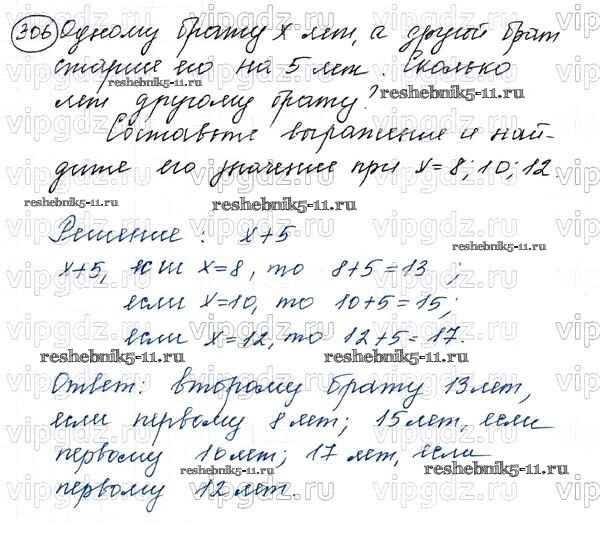 306 Одному брату x лет, а другой брат
старше его на 5 лет. Сколько
лет другому брату?
Составьте выражение и най-
дите его значение при x=8; 10; 12.
Решение: x+5
x+5, если x=8, то 8+5=13;
если x=10, то 10+5=15;
если x=12, то 12+5=17.
Ответ: второму брату 13 лет,
если первому 8 лет; 15 лет, если
первому 10 лет; 17 лет, если
первому 12 лет.
vipgdz.ru
reshebnik5-11.ru